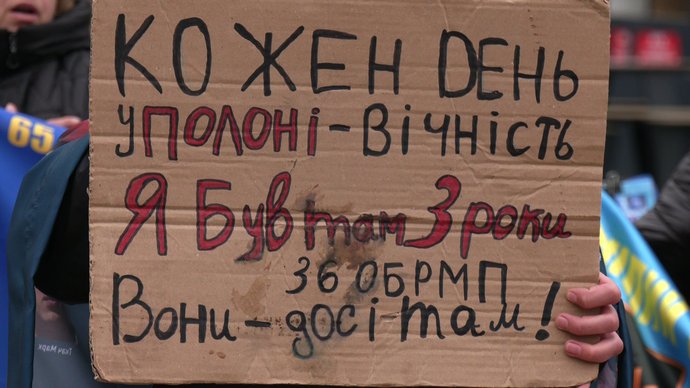 КОЖЕН DЕНЬ
у ПОЛОНі - Вічність
Я Був там 3 роки
36 ОБРМП
Вони - досі - там!
65